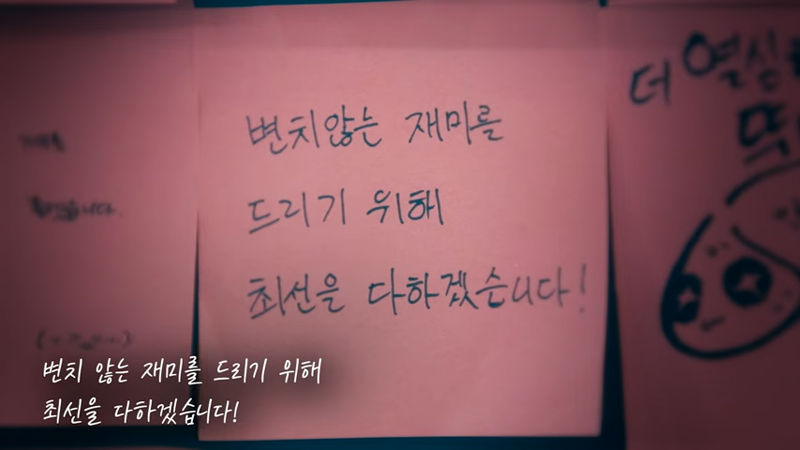 변치않는 재미를
드리기 위해
최선을 다하겠습니다!
더 열심
변치 않는 재미를 드리기 위해
최선을 다하겠습니다!